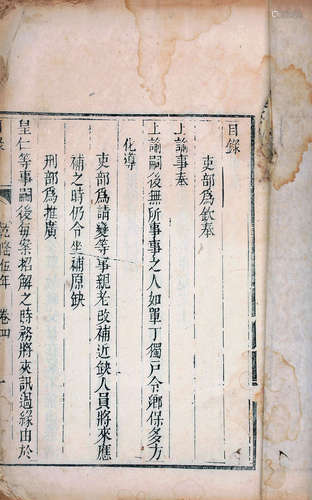 目錄
吏部爲欽奉
上諭事奉
上諭嗣後無所事事之人如單丁獨戶令鄉保多方
化導
吏部爲請變等事親老改補近缺人員將來應
補之時仍令坐補原缺
刑部爲推廣
皇仁等事嗣後每案招解之時務將夾訊過緣由於
乾隆伍年 卷四 一
目錄